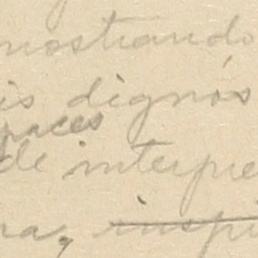 mostrando
is dignos
paces
de interpre
ra, inspi